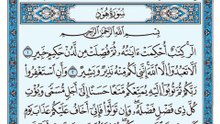 سورة هود
بسم الله الرحمن الرحيم
الر كتب أحكمت ءايته ثم فصلت من لدن حكيم خبير ١
ألا تعبدوا إلا الله إننى لكم منه نذير وبشير ٢ وأن استغفروا
ربكم ثم توبوا إليه يمتعكم متعا حسنا إلى أجل مسمى ويؤت
كل ذى فضل فضله وإن تولوا فإنى أخاف عليكم عذاب يوم